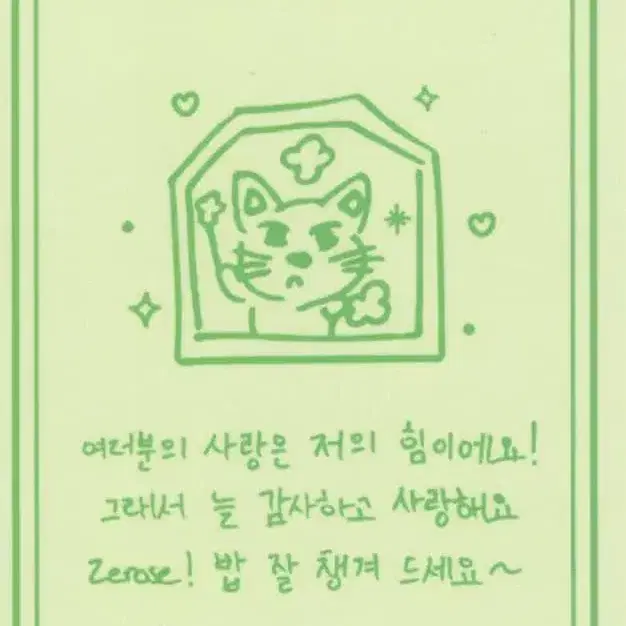 여러분의 사랑은 저의 힘이에요!
그래서 늘 감사하고 사랑해요
Zerose! 밥 잘 챙겨 드세요~